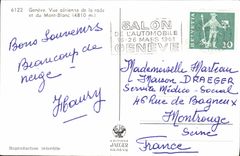 6122 Genève. Vue aérienne de la rade
et du Mont-Blanc (4810 m)
Bons Souvenirs
Beaucoup de
neige
SALON
DE L'AUTOMOBILE
16-26 MARS 1961
GENÈVE
HELVETIA
10
Mademoiselle Marteau
Maison DRAEGER
Service Médico-Social
46 Rue de Bagneux
Montrouge
Seine
France
JAEGER
Reproduction interdite